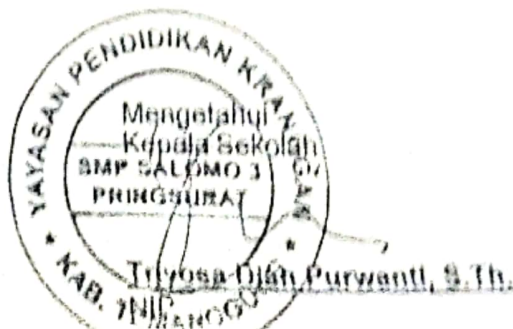 YAYASAN PENDIDIKAN KRANGGAN
Mengetahui
Kepala Sekolah
SMP SALOMO 3
PRINGSURAT
Triyosa Diah Purwanti, S.Th.
NIP.
* KAB. *